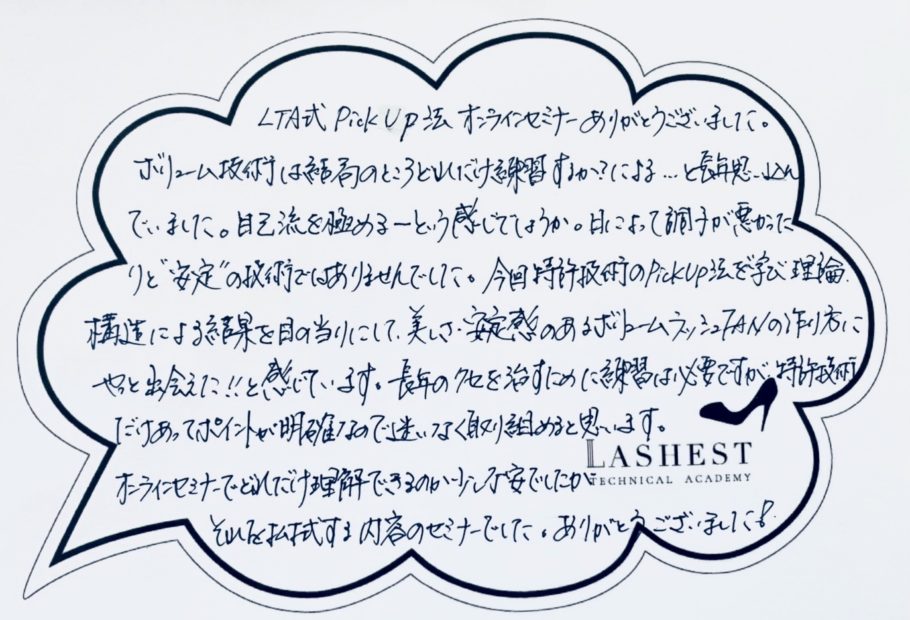 LTA式 Pick Up法 オンラインセミナーありがとうございました。
ボリューム技術は結局のところどれだけ練習するか?による…と長年思い込ん
でいました。自己流を極めるーという感じでしょうか。日によって調子が悪かった
りと"安定"の技術ではありませんでした。今回特許技術のPickUp法を学び理論、
構造による結果を目の当りにして、美しさ・安定感のあるボリュームラッシュFANの作り方に
やっと出会えた!!と感じています。長年のクセを治すために練習は必要ですが、特許技術
だけあってポイントが明確なので迷いなく取り組めると思います。
LASHEST
TECHNICAL ACADEMY
オンラインセミナーでどれだけ理解できるのか少し不安でしたが
それを払拭する内容のセミナーでした。ありがとうございました!